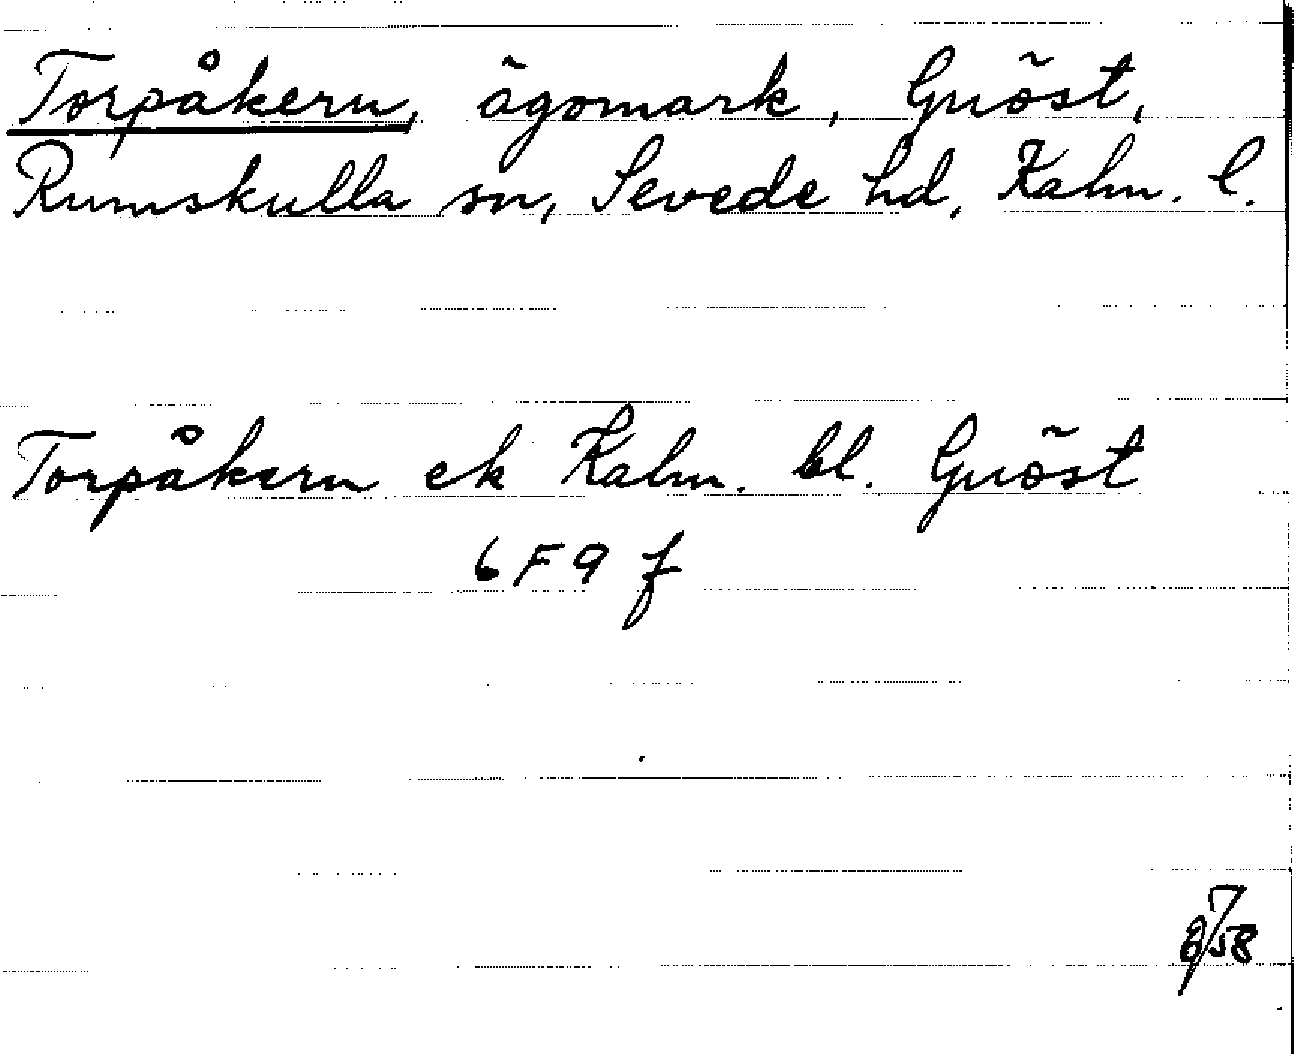 Torpåkern, ägomark, Gnöst,
Rumskulla sn, Sevede hd, Kalm. l.
Torpåkern ek Kalm. bl. Gnöst
6 F 9 f
8/7 58